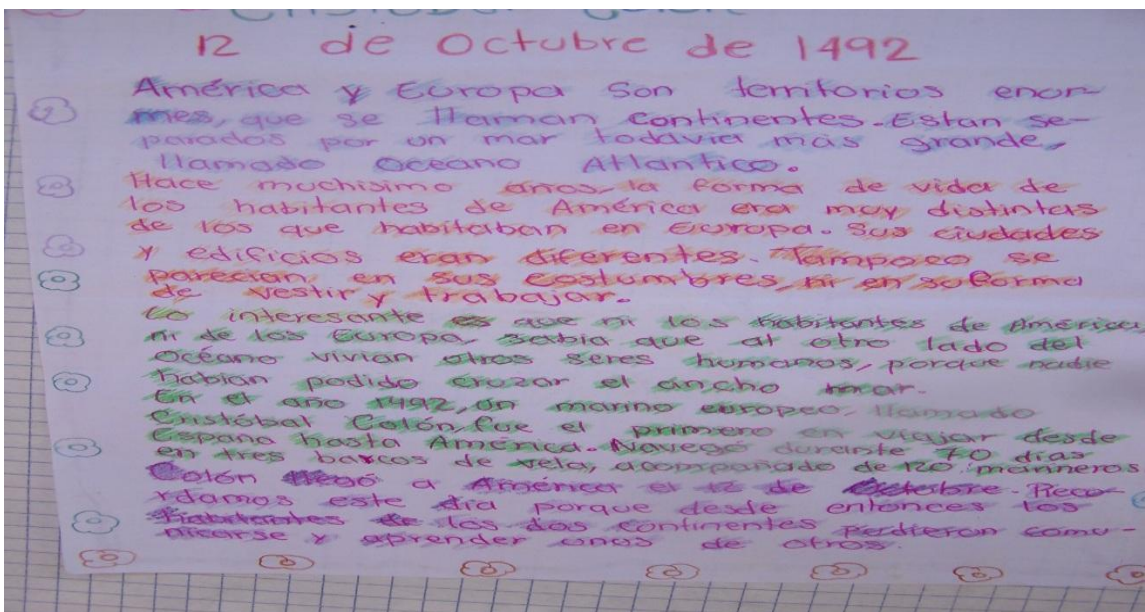 Cristóbal Colón
12 de Octubre de 1492
América y Europa son territorios enor-
mes, que se llaman continentes. Estan se-
parados por un mar todavia más grande,
llamado Oceáno Atlantico.
Hace muchisimo años, la forma de vida de
los habitantes de América era muy distintas
de los que habitaban en Europa. Sus ciudades
y edificios eran diferentes. Tampoco se
parecian en sus costumbres, ni en su forma
de vestir y trabajar.
Lo interesante es que ni los habitantes de América
ni de los Europa, sabia que al otro lado del
Océano vivian otros seres humanos, porque nadie
habian podido cruzar el ancho mar.
En el año 1492, un marino europeo, llamado
Cristóbal Colón, fue el primero en viajar desde
España hasta América. Navegó durante 70 dias
en tres barcos de vela, acompañado de 120 marineros
Colón llegó a América el 12 de Octubre. Reco-
rdamos este dia porque desde entonces los
habitantes de los dos continentes pudieron comu-
nicarse y aprender unos de otros.